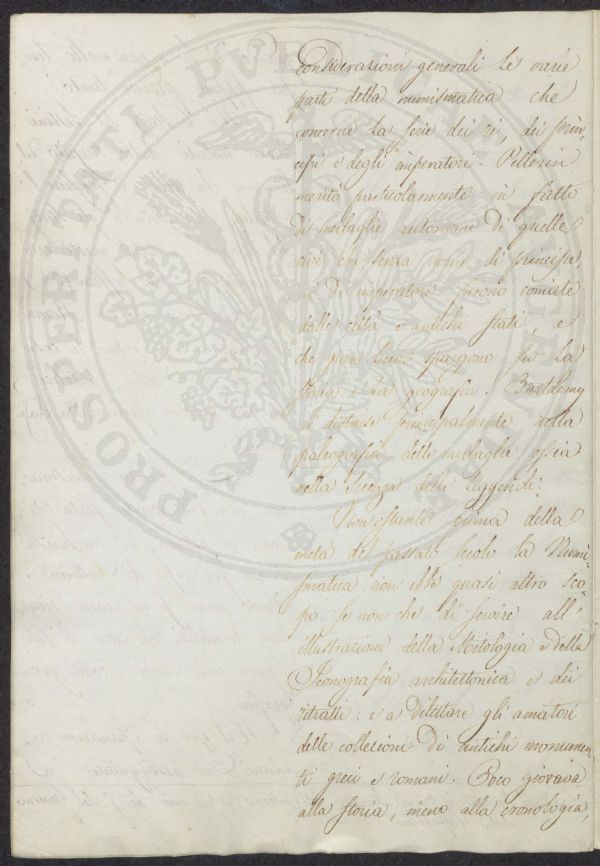 considerazioni generali le varie
parti della numismatica che
concerne la serie dei re, dei prin-
cipi e degli imperatori. Pellerin
meritò particolarmente in fatto
di medaglie autonome di quelle
cioè che senza nome di principe,
nè di imperatore furono coniate
dalle città e antichi stati, e
che spargono su la
storia e la geografia. Bartelemy
si distinse principalmente nella
paleografia delle medaglie ossia
nella scienza delle leggende.
Non ostante prima della
metà del passato secolo la Numi-
smatica non ebbe quasi altro sco-
po se non che di servire all'
illustrazione della Mitologia e della
Iconografia architettonica e dei
ritratti: e a dilettare gli amatori
delle collezioni di antichi monumen-
ti greci e romani. Poco giovava
alla storia, meno alla cronologia,
PROSPERITATI PUBLICAE